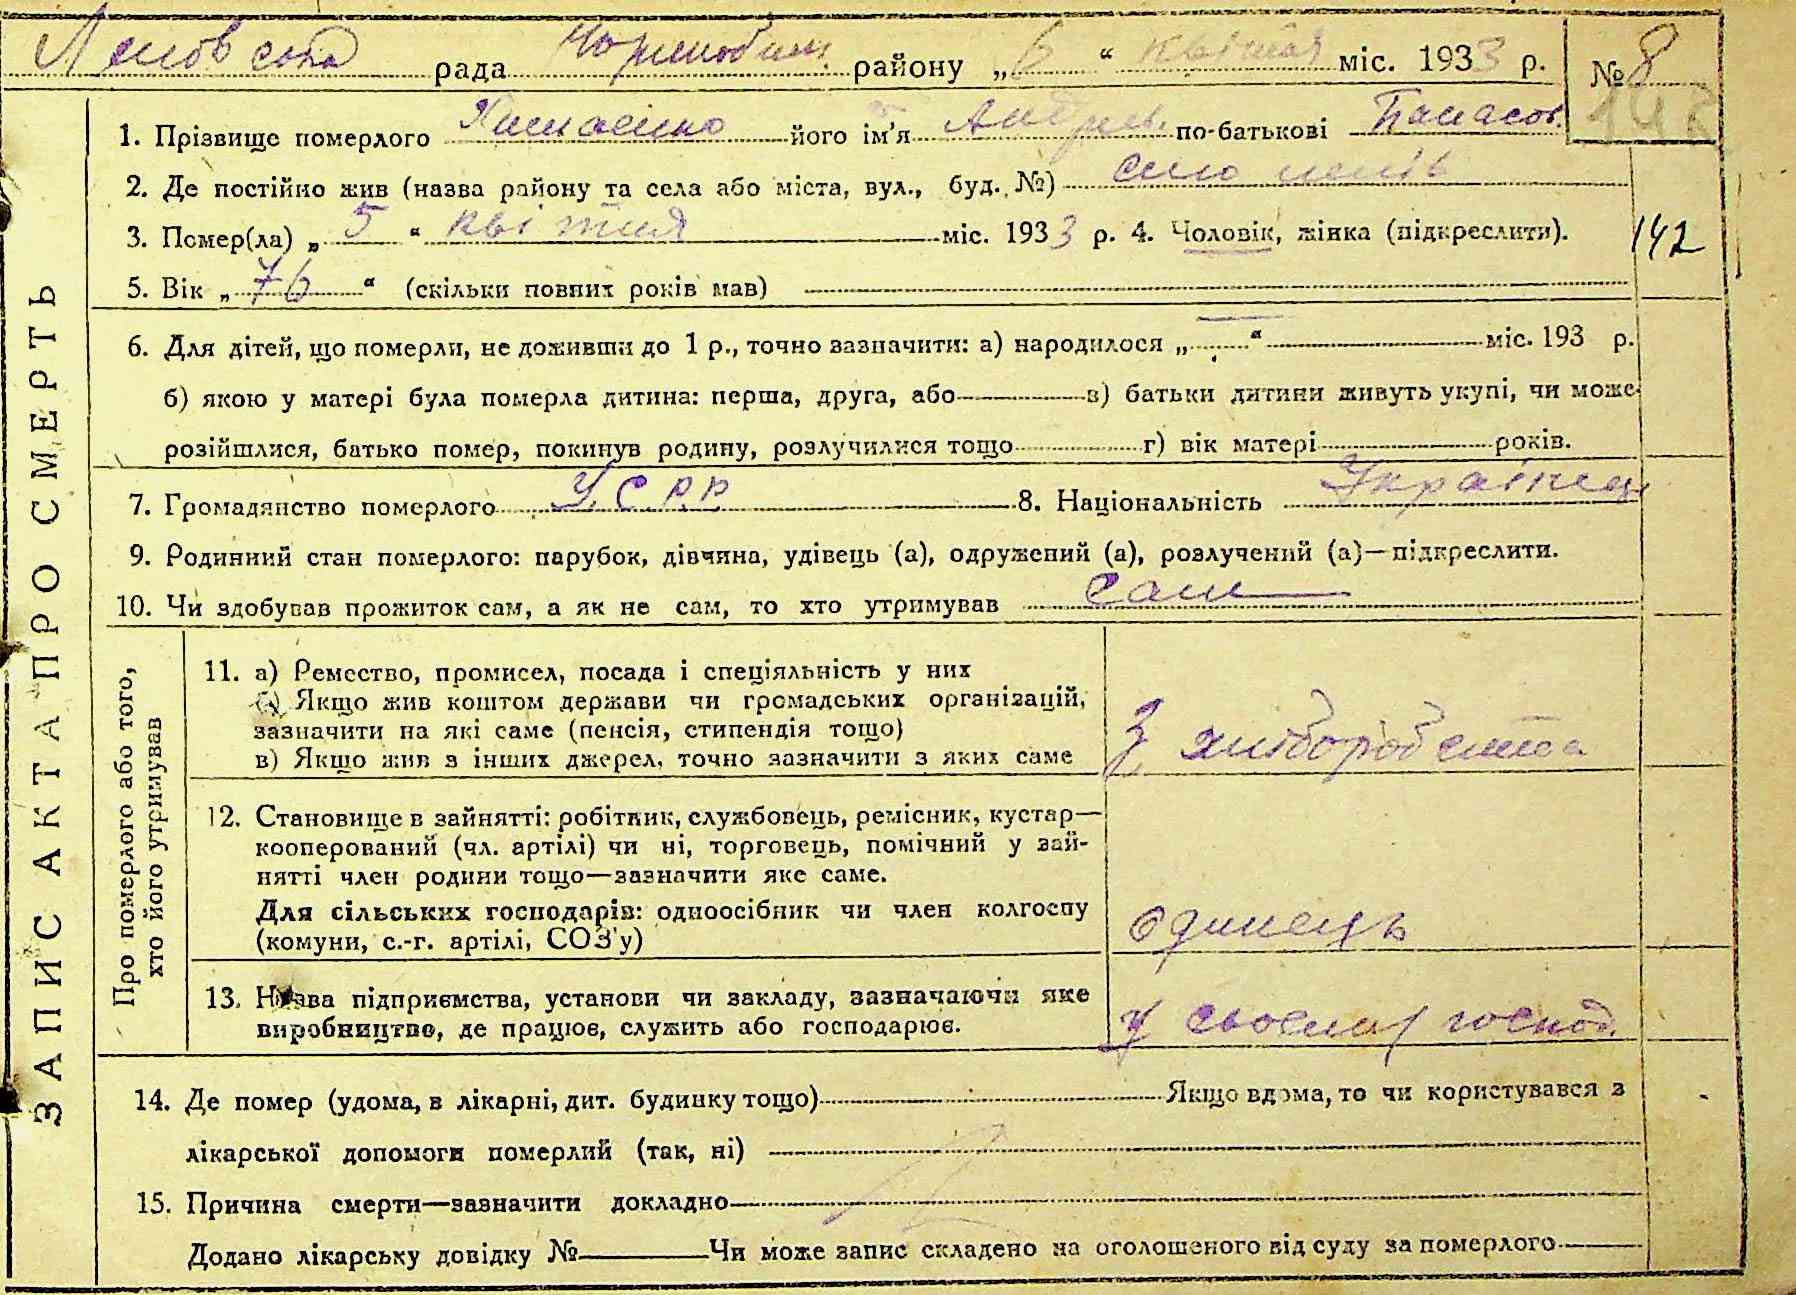 рада Чорнобил. району „6“ квітня міс. 1933 р. № 8
142
1. Прізвище померлого його ім’я Андрій по-батькові Панасов.
2. Де постійно жив (назва району та села або міста, вул., буд. №) село
3. Помер(ла) „5“ квітня міс. 1933 р. 4. Чоловік, жінка (підкреслити).
142
5. Вік „76“ (скільки повних років мав)
6. Для дітей, що померли, не доживши до 1 р., точно зазначити: а) народилося „ “ міс. 193 р.
б) якою у матері була померла дитина: перша, друга, або в) батьки дитини живуть укупі, чи може
розійшлися, батько помер, покинув родину, розлучилися тощо г) вік матері років.
7. Громадянство померлого У.С.Р.Р 8. Національність Українець
9. Родинний стан померлого: парубок, дівчина, удівець (а), одружений (а), розлучений (а)—підкреслити.
10. Чи здобував прожиток сам, а як не сам, то хто утримував сам
ЗАПИС АКТА ПРО СМЕРТЬ
Про померлого або того,
хто його утримував
11. а) Ремество, промисел, посада і спеціяльність у них
б) Якщо жив коштом держави чи громадських організацій,
зазначити на які саме (пенсія, стипендія тощо)
в) Якщо жив з інших джерел, точно зазначити з яких саме
З хліборобства
12. Становище в зайнятті: робітник, службовець, ремісник, кустар—
кооперований (чл. артілі) чи ні, торговець, помічний у зай-
нятті член родини тощо—зазначити яке саме.
Для сільських господарів: одноосібник чи член колгоспу
(комуни, с.-г. артілі, СОЗ’у)
одинець
13. Назва підприємства, установи чи закладу, зазначаючи яке
виробництво, де працює, служить або господарює.
У своєму господ.
14. Де помер (удома, в лікарні, дит. будинку тощо) Якщо вдома, то чи користувався з
лікарської допомоги померлий (так, ні)
15. Причина смерти—зазначити докладно
Додано лікарську довідку № Чи може запис складено на оголошеного від суду за померлого